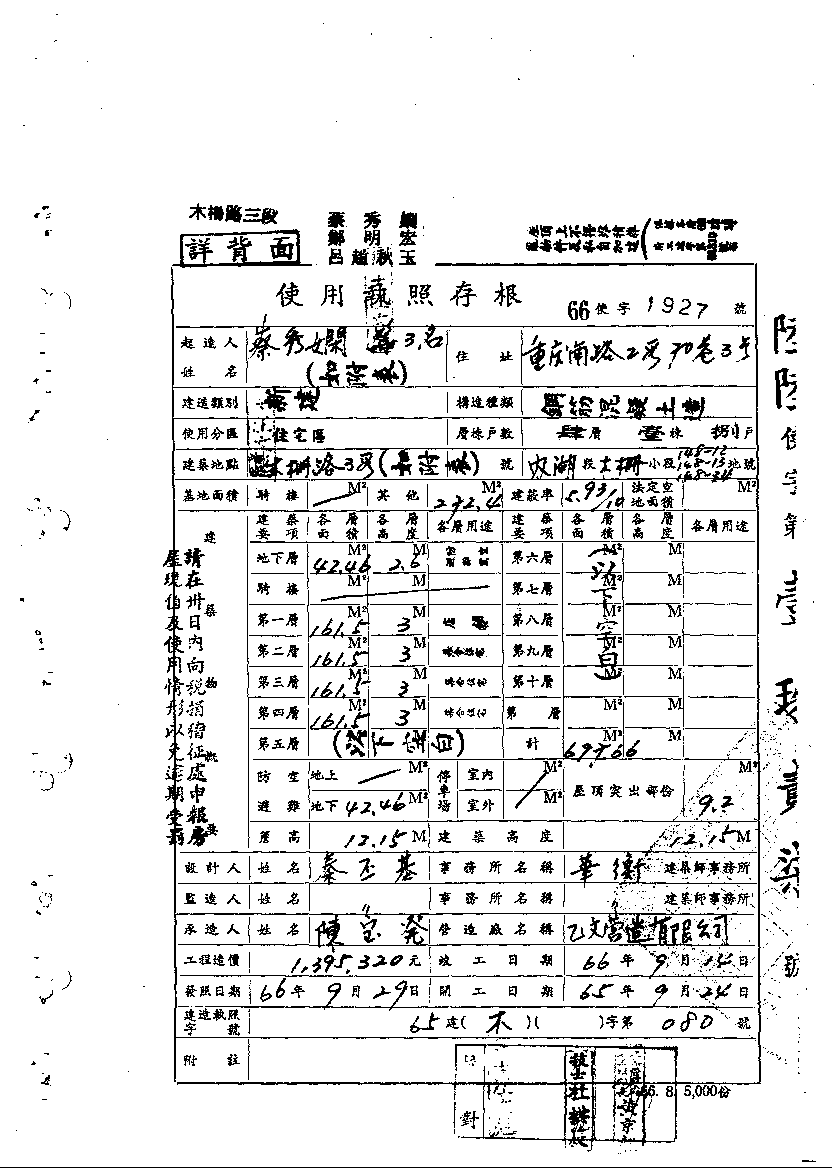 木柵路三段
蔡秀嫻
鄭明宏
呂趙秋玉
詳背面
使用執照存根
66使字1927號
起造人姓名 蔡秀嫻等3名(如附表) 住址 重庆南路2段70巷3号
建造類別 新建 構造種類 鋼筋混凝土造
使用分區 住宅區 層棟戶數 肆層壹棟捌戶
建築地點 木柵路3段 號 內湖段木柵小段148-12 148-13 148-34地號
基地面積 騎樓 M² 其他 272.4 M² 建蔽率 5.93/10 法定空地面積 M²
建築要項 各層面積 各層高度 各層用途 建築要項 各層面積 各層高度 各層用途
地下層 42.46 M² 2.6 M 第六層 M² M
騎樓 M² M 第七層 M² M
第一層 161.5 M² 3 M 第八層 M² M
第二層 161.5 M² 3 M 第九層 M² M
第三層 161.5 M² 3 M 第十層 M² M
第四層 161.5 M² 3 M 第 層 M² M
以下空白
第五層 (以下空白) 計 M² M
防空避難 地上 M² 停車場 室內 M² 屋頂突出部份 9.2 M²
地下 42.46 M² 室外 M²
簷高 12.15 M 建築高度 12.15 M
設計人 姓名 秦丕基 事務所名稱 華衛 建築師事務所
監造人 姓名 〃 事務所名稱 〃 建築師事務所
承造人 姓名 陳宝発 營造廠名稱 乙文营造有限公司
工程造價 1,395,320元 竣工日期 66年9月14日
發照日期 66年9月29日 開工日期 65年9月24日
建造執照字號 65建(木)( )字第080號
附註
建築物概要
請在卅日內向稅捐稽征處申報房
屋現值及使用情形以免逾期受罰
對
66. 8. 5,000份
陸陸使字第壹玖貳柒號